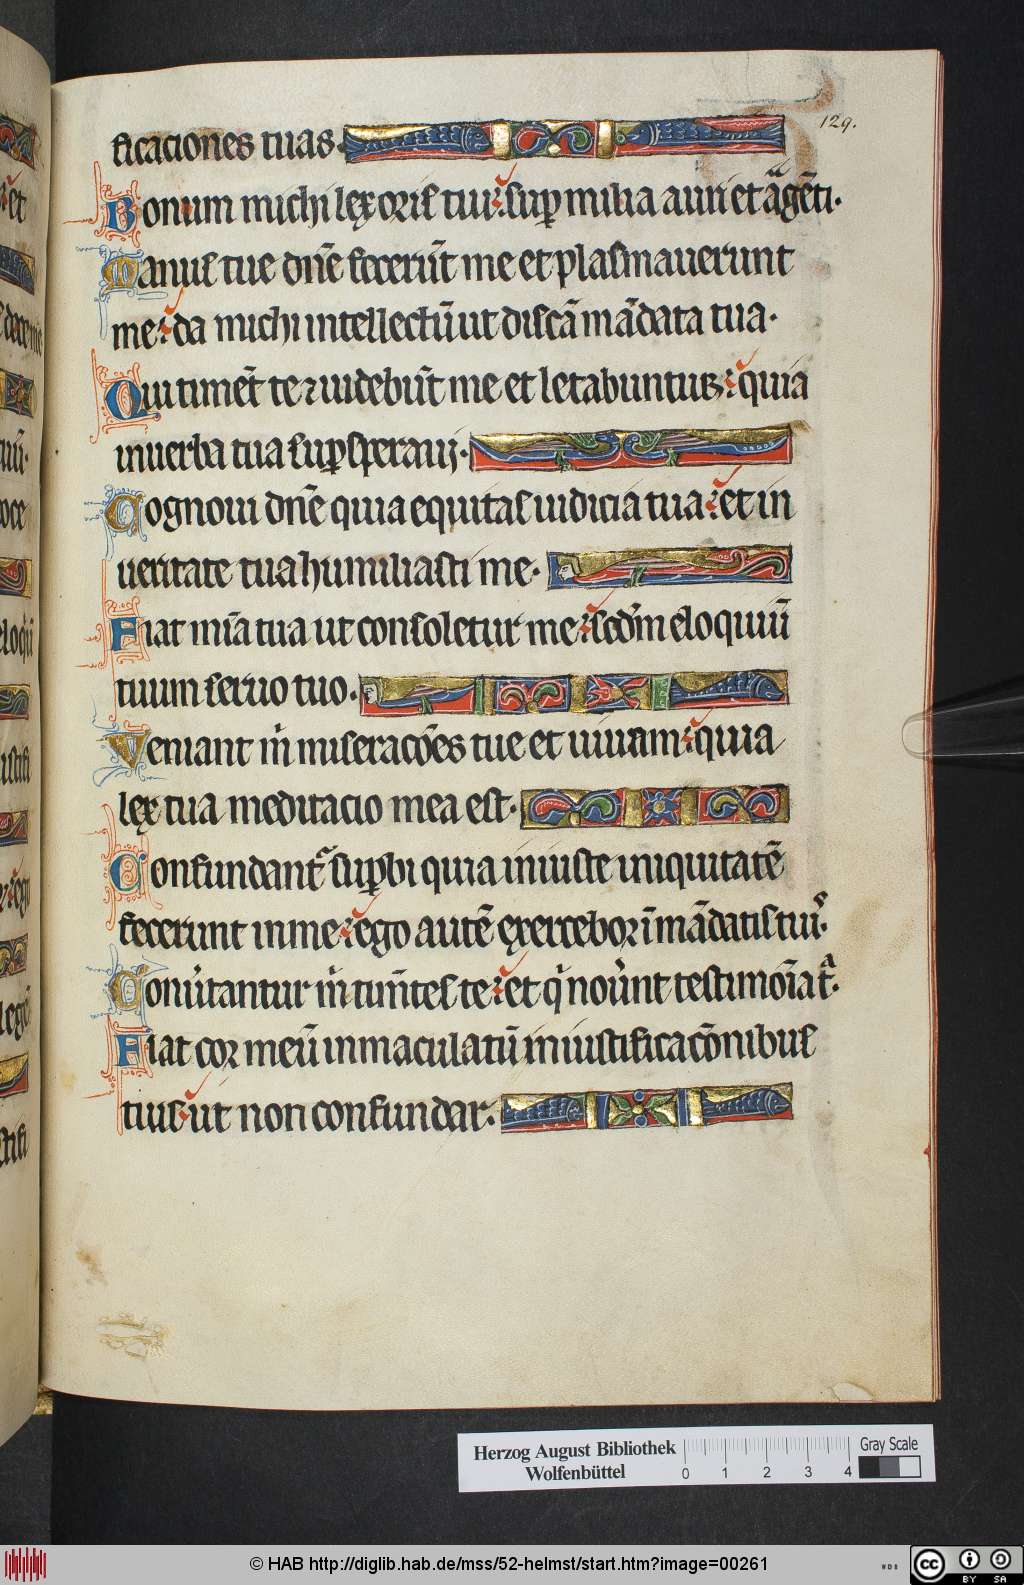 ficaciones tuas.
129.
Bonum michi lex oris tui: sup̱ milia auri et argēti.
Manus tue dn̄e fecerūt me et plasmauerunt
me: da michi intellectū ut discā mādata tua.
Qui timēt te uidebūt me et letabuntur: quia
in uerba tua sup̱speraui.
Cognoui dn̄e quia equitas iudicia tua: et in
ueritate tua humiliasti me.
Fiat mīa tua ut consoletur me: scd̄m eloquiū
tuum seruo tuo.
Veniant m̄ miseracōes tue et uiuam: quia
lex tua meditacio mea est.
Confundant᷑ sup̱bi quia iniuste iniquitatē
fecerunt in me: ego autē exercebor ī mādatis tuis.
Conūtantur m̄ timētes te: et qͥ noūnt testimoīa tᵃ.
Fiat cor meū inmaculatū in iustificacōnibus
tuis: ut non confundar.
Herzog August Bibliothek
Wolfenbüttel
0 1 2 3 4
Gray Scale
© HAB http://diglib.hab.de/mss/52-helmst/start.htm?image=00261
WDB
cc BY SA